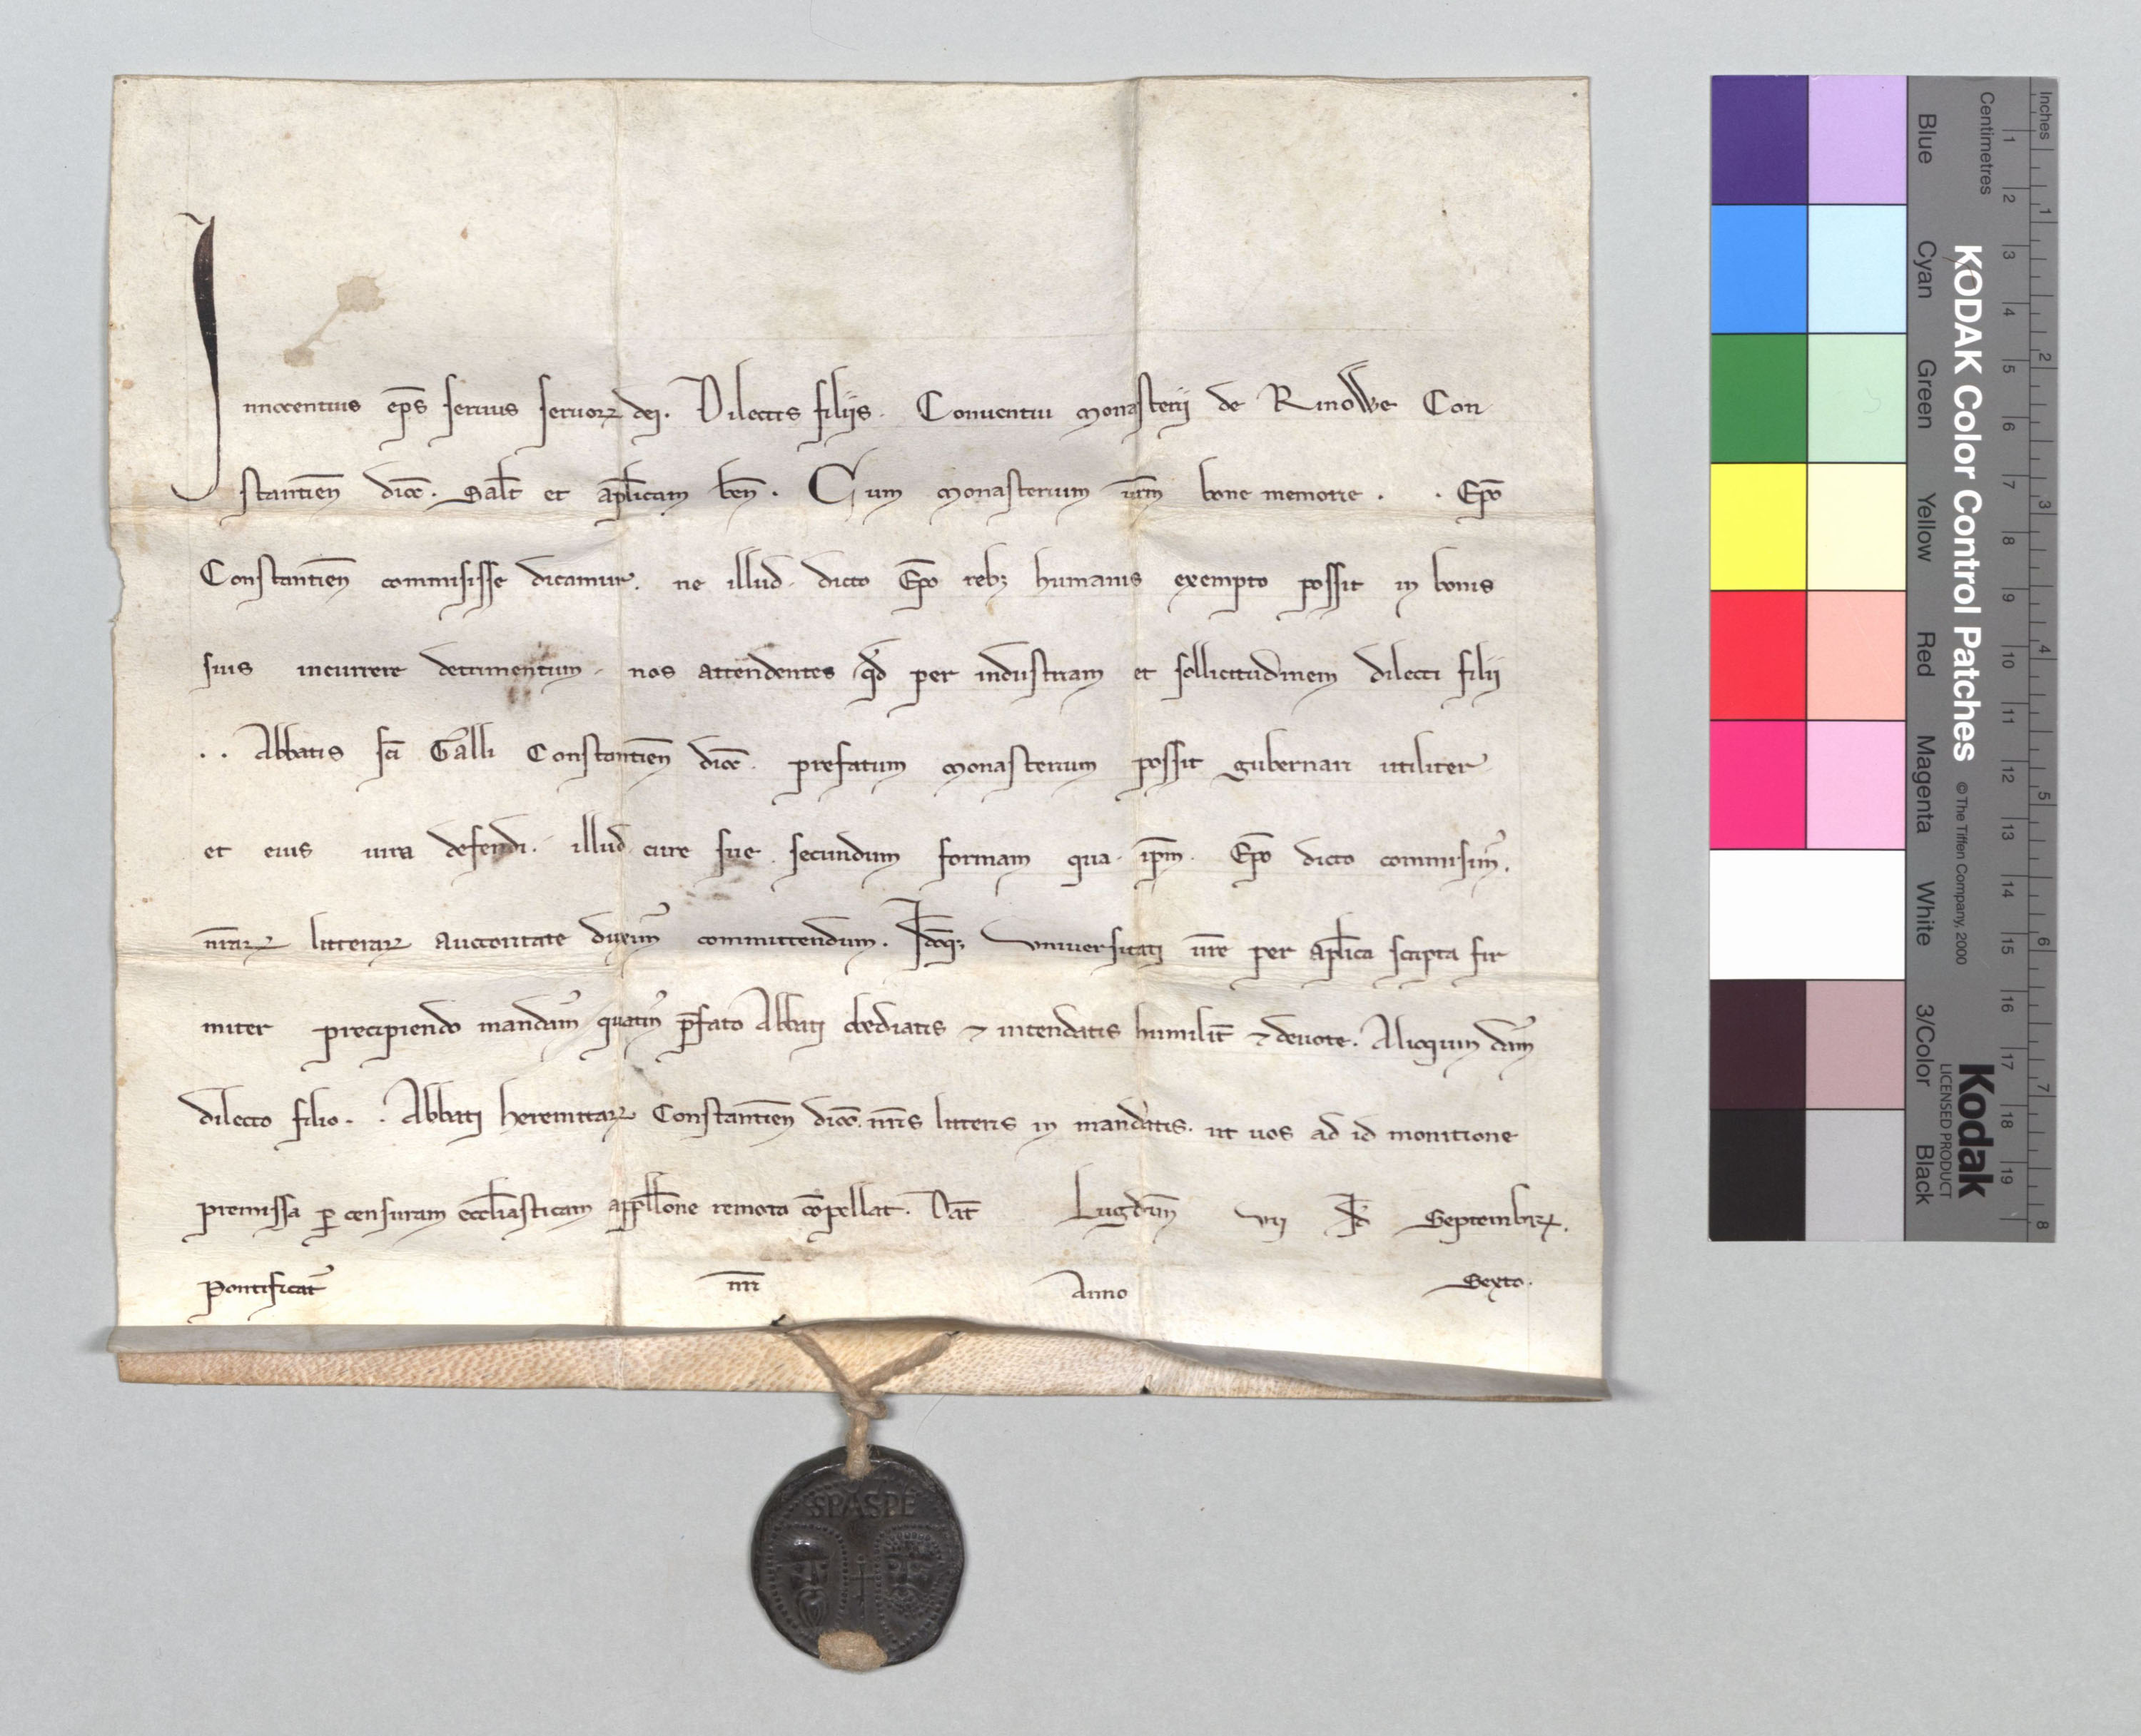 Innocentius ep̅s seruus seruoꝝ dei. Dilectis filijs. Conuentui monasterij de Rinowe Con
stantien̅ dioc̅. Salt̅ et ap̅licam ben̅. Cum monasterium ur̅m bone memorie . . Ep̅o
Constantien̅ commisisse dicamur. ne illud dicto Ep̅o rebꝫ humanis exempto possit in bonis
suis incurrere detrimentum. nos attendentes qd̅ per industriam et sollicitudinem dilecti filij
. . Abbatis sc̅i Galli Constantien̅ dioc̅. prefatum monasterium possit gubernari utiliter
et eius iura defendi. illud cure sue secundum formam qua ip̅m. Ep̅o dicto commisim᷒.
nr̅aꝝ litteraꝝ auctoritate duxim᷒ committendum. Id̅oqꝫ uniuersitati ur̅e per ap̅lica scripta fir
miter precipiendo mandam᷒ quatin᷒ p̅fato Abbati obediatis ⁊ intendatis humilit̅ ⁊ deuote. Alioquin dam᷒
dilecto filio . . Abbati heremitaꝝ Constantien̅ dioc̅. nr̅is litteris in mandatis. ut uos ad id monitione
premissa ꝑ censuram eccl̅iasticam appell̅one remota co̅pellat. Dat̅ Lugdun̅ vij kl̅ Septembrꝝ.
Pontificat᷒ nr̅i Anno Sexto.
SPASPE
Inches
Centimetres
1 2 3 4 5 6 7 8
1 2 3 4 5 6 7 8 9 10 11 12 13 14 15 16 17 18 19
KODAK Color Control Patches © The Tiffen Company, 2000
Kodak
LICENSED PRODUCT
Blue
Cyan
Green
Yellow
Red
Magenta
White
3/Color
Black